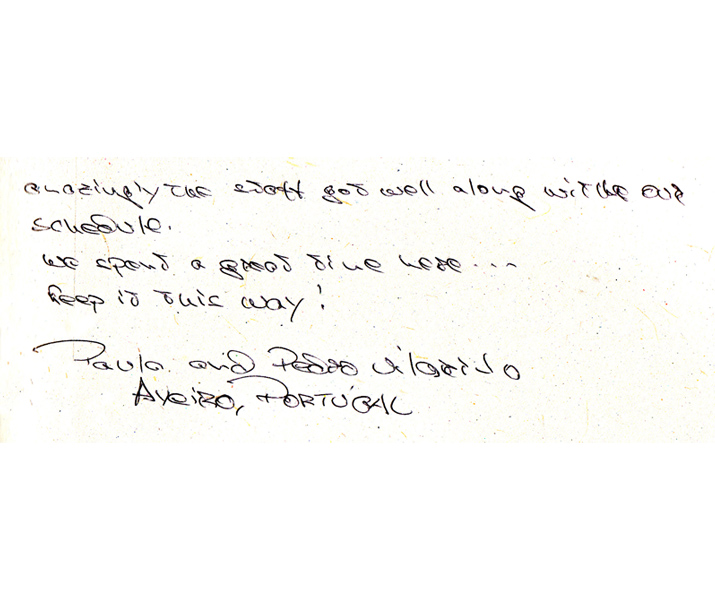 amazingly the staff got well along with the our
schedule.
we spend a great time here...
keep it this way!
Paula and Pedro Vilarinho
Aveiro, PORTUGAL